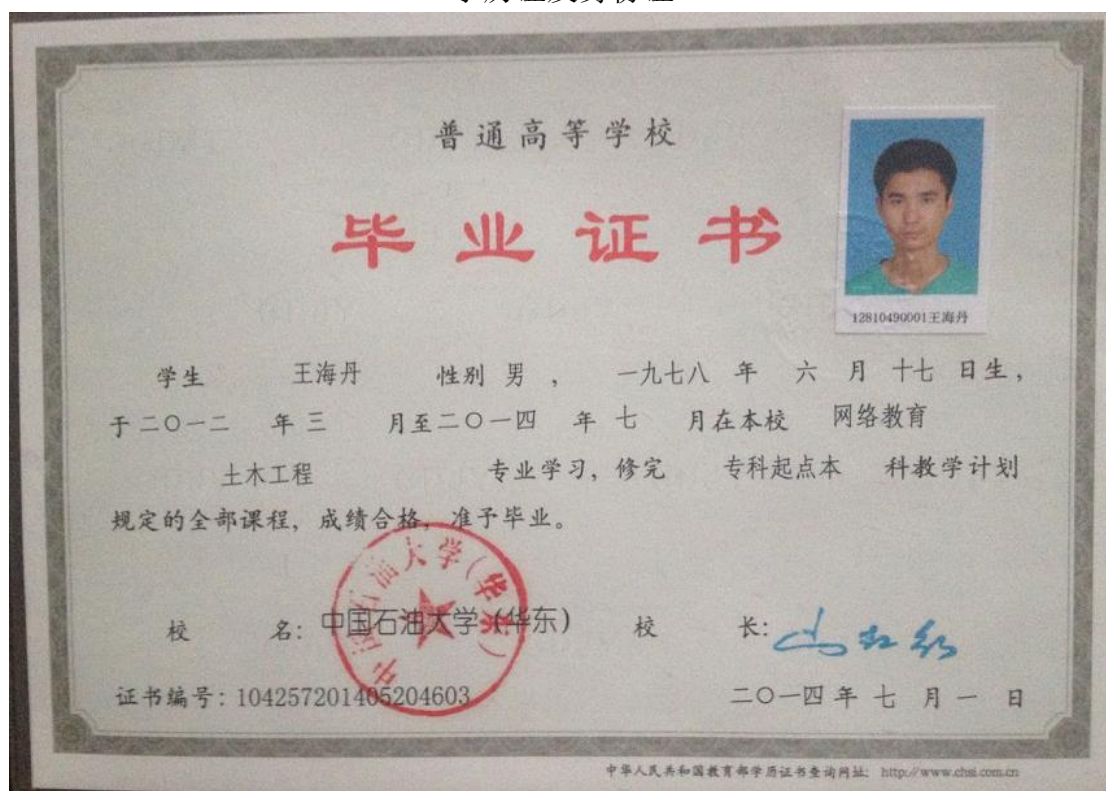 普通高等学校
毕业证书
12810490001王海丹
学生 王海丹 性别 男 , 一九七八 年 六 月 十七 日生,
于二〇一二 年 三 月至二〇一四 年 七 月在本校 网络教育
土木工程 专业学习, 修完 专科起点本 科教学计划
规定的全部课程, 成绩合格, 准予毕业。
中国石油大学(华东)
校 名: 中国石油大学(华东) 校 长:
证书编号: 104257201405204603 二〇一四 年 七 月 一 日
中华人民共和国教育部学历证书查询网址: http://www.chsi.com.cn